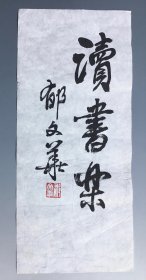 讀書樂
郁文華